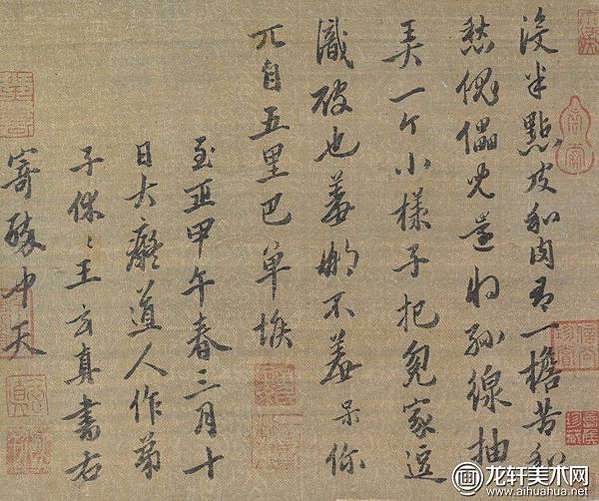 沒半點皮和肉有一擔苦和
愁傀儡兒還將絲線抽
弄一个小樣子把冤家逗
識破也羞那不羞呆你
兀自五里巴单堠
至正甲午春三月十
日大癡道人作弟
子休々王玄真書右
寄醉中天
龙轩美术网
www.aihuahua.net